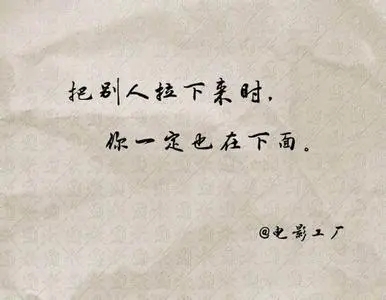 把别人拉下来时，
你一定也在下面。
@电影工厂